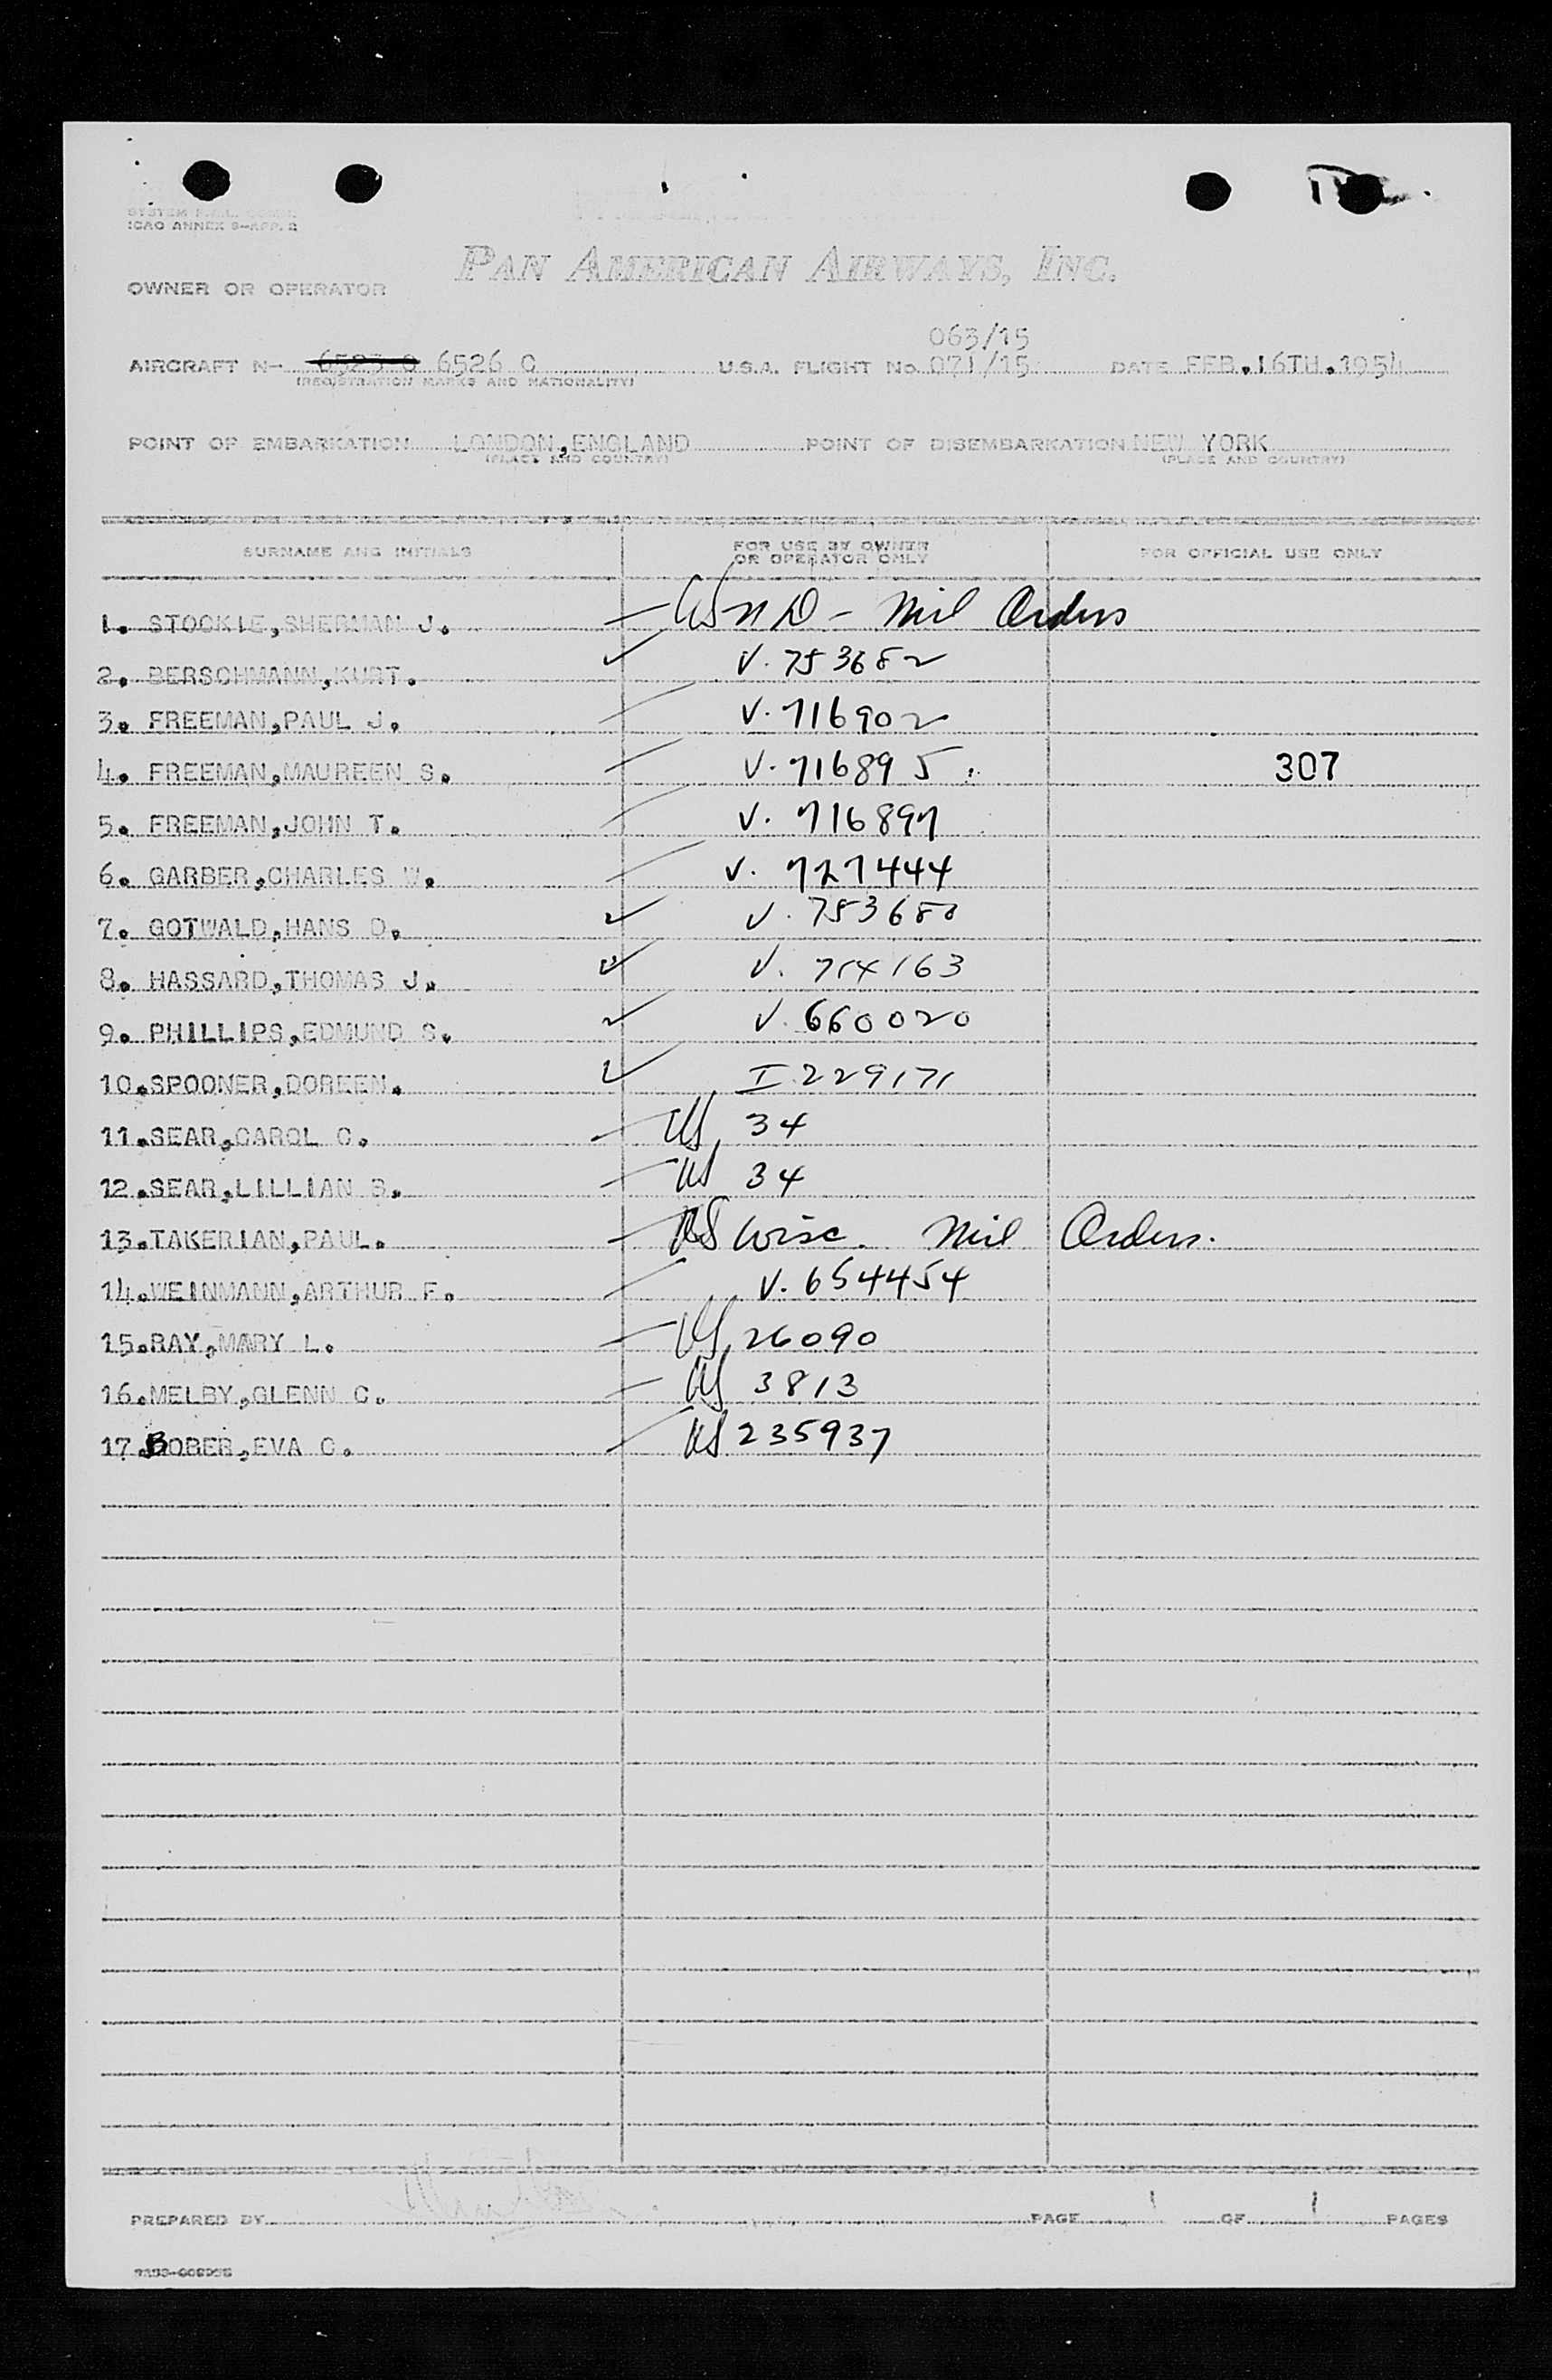 ICAO ANNEX 9-APP. 2
PAN AMERICAN AIRWAYS, INC.
OWNER OR OPERATOR
063/15
AIRCRAFT N- 6523 C 6526 C U.S.A. FLIGHT No. 071/15 DATE FEB.16TH.1954
(REGISTRATION MARKS AND NATIONALITY)
POINT OF EMBARKATION LONDON,ENGLAND POINT OF DISEMBARKATION NEW YORK
(PLACE AND COUNTRY) (PLACE AND COUNTRY)
SURNAME AND INITIALS FOR USE BY OWNER OR OPERATOR ONLY FOR OFFICIAL USE ONLY
1. STOCKIE,SHERMAN J. US ND - Mil Orders
2. BERSCHMANN,KURT. V. 753682
3. FREEMAN,PAUL J. V. 716902
4. FREEMAN,MAUREEN S. V. 716895 307
5. FREEMAN,JOHN T. V. 716897
6. GARBER,CHARLES W. V. 727444
7. GOTWALD,HANS D. V. 753680
8. HASSARD,THOMAS J. V. 714163
9. PHILLIPS,EDMUND S. V. 660020
10.SPOONER,DOREEN. I.229171
11.SEAR,CAROL C. US 34
12.SEAR,LILLIAN B. US 34
13.TAKERIAN,PAUL. US Wisc. Mil Orders.
14.WEINMANN,ARTHUR F. V. 654454
15.RAY,MARY L. US 26090
16.MELBY,GLENN C. US 3813
17.BOBER,EVA C. US 235937
PREPARED BY PAGE 1 OF 1 PAGES